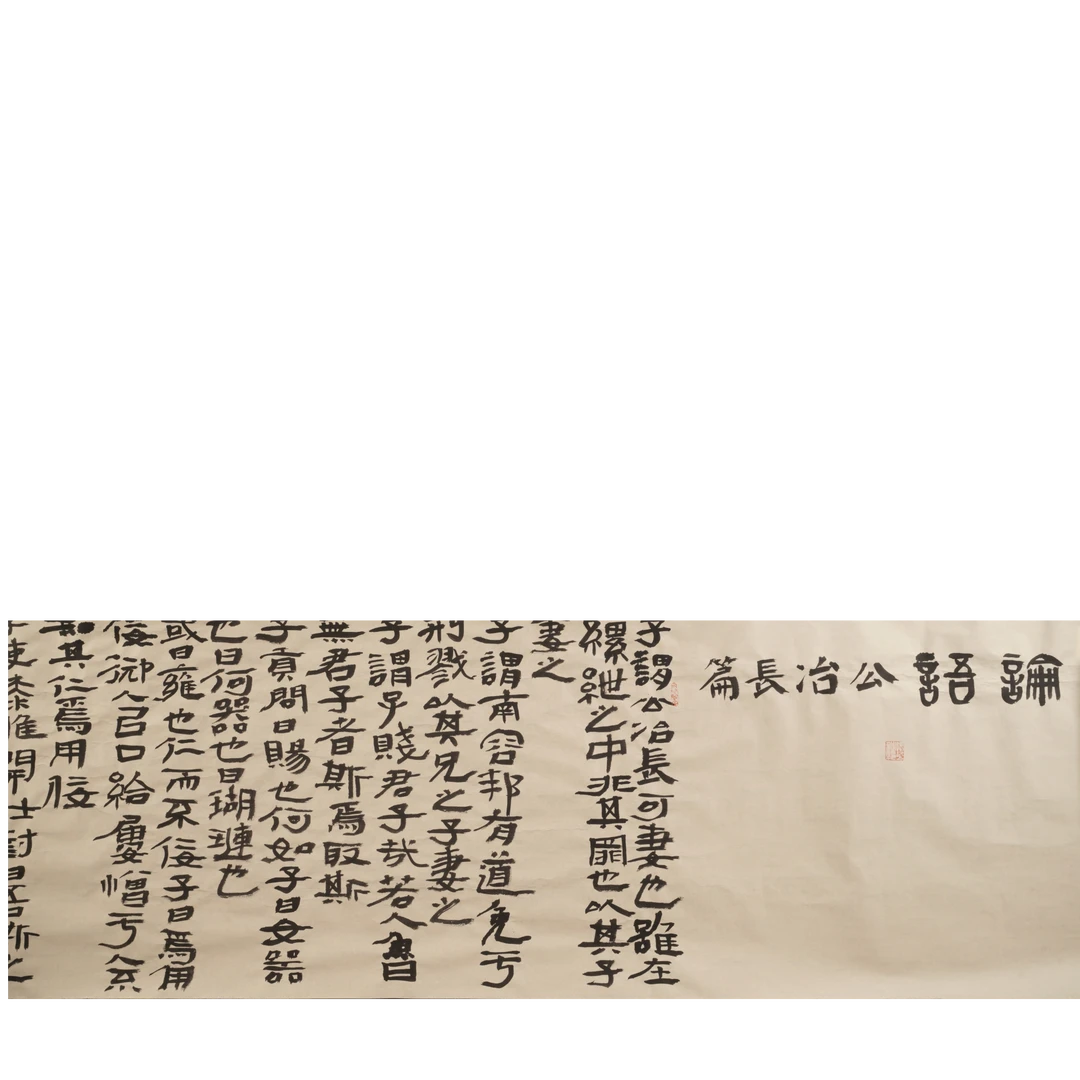 論語公冶長篇
子謂公冶長可妻也雖在
縲紲之中非其罪也以其子
妻之
子謂南容邦有道免于
刑戮以其兄之子妻之
子謂子賤君子哉若人魯
無君子者斯焉取斯
子貢問曰賜也何如子曰女器
也曰何器也曰瑚璉也
或曰雍也仁而不佞子曰焉用
佞御人㠯口給屢憎于人不
知其仁焉用佞
子使漆雕開仕對曰吾斯之